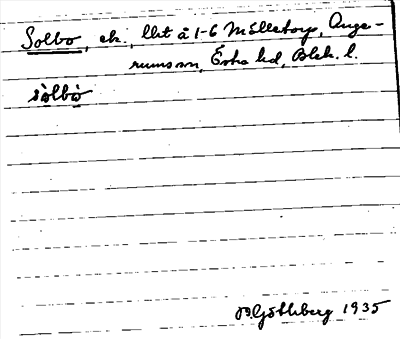 Solbo, ek., lht å 1-6 Målletorp, Ange-
rums sn, Östra hd, Blek. l.
sòlbò
B. Göthberg 1935